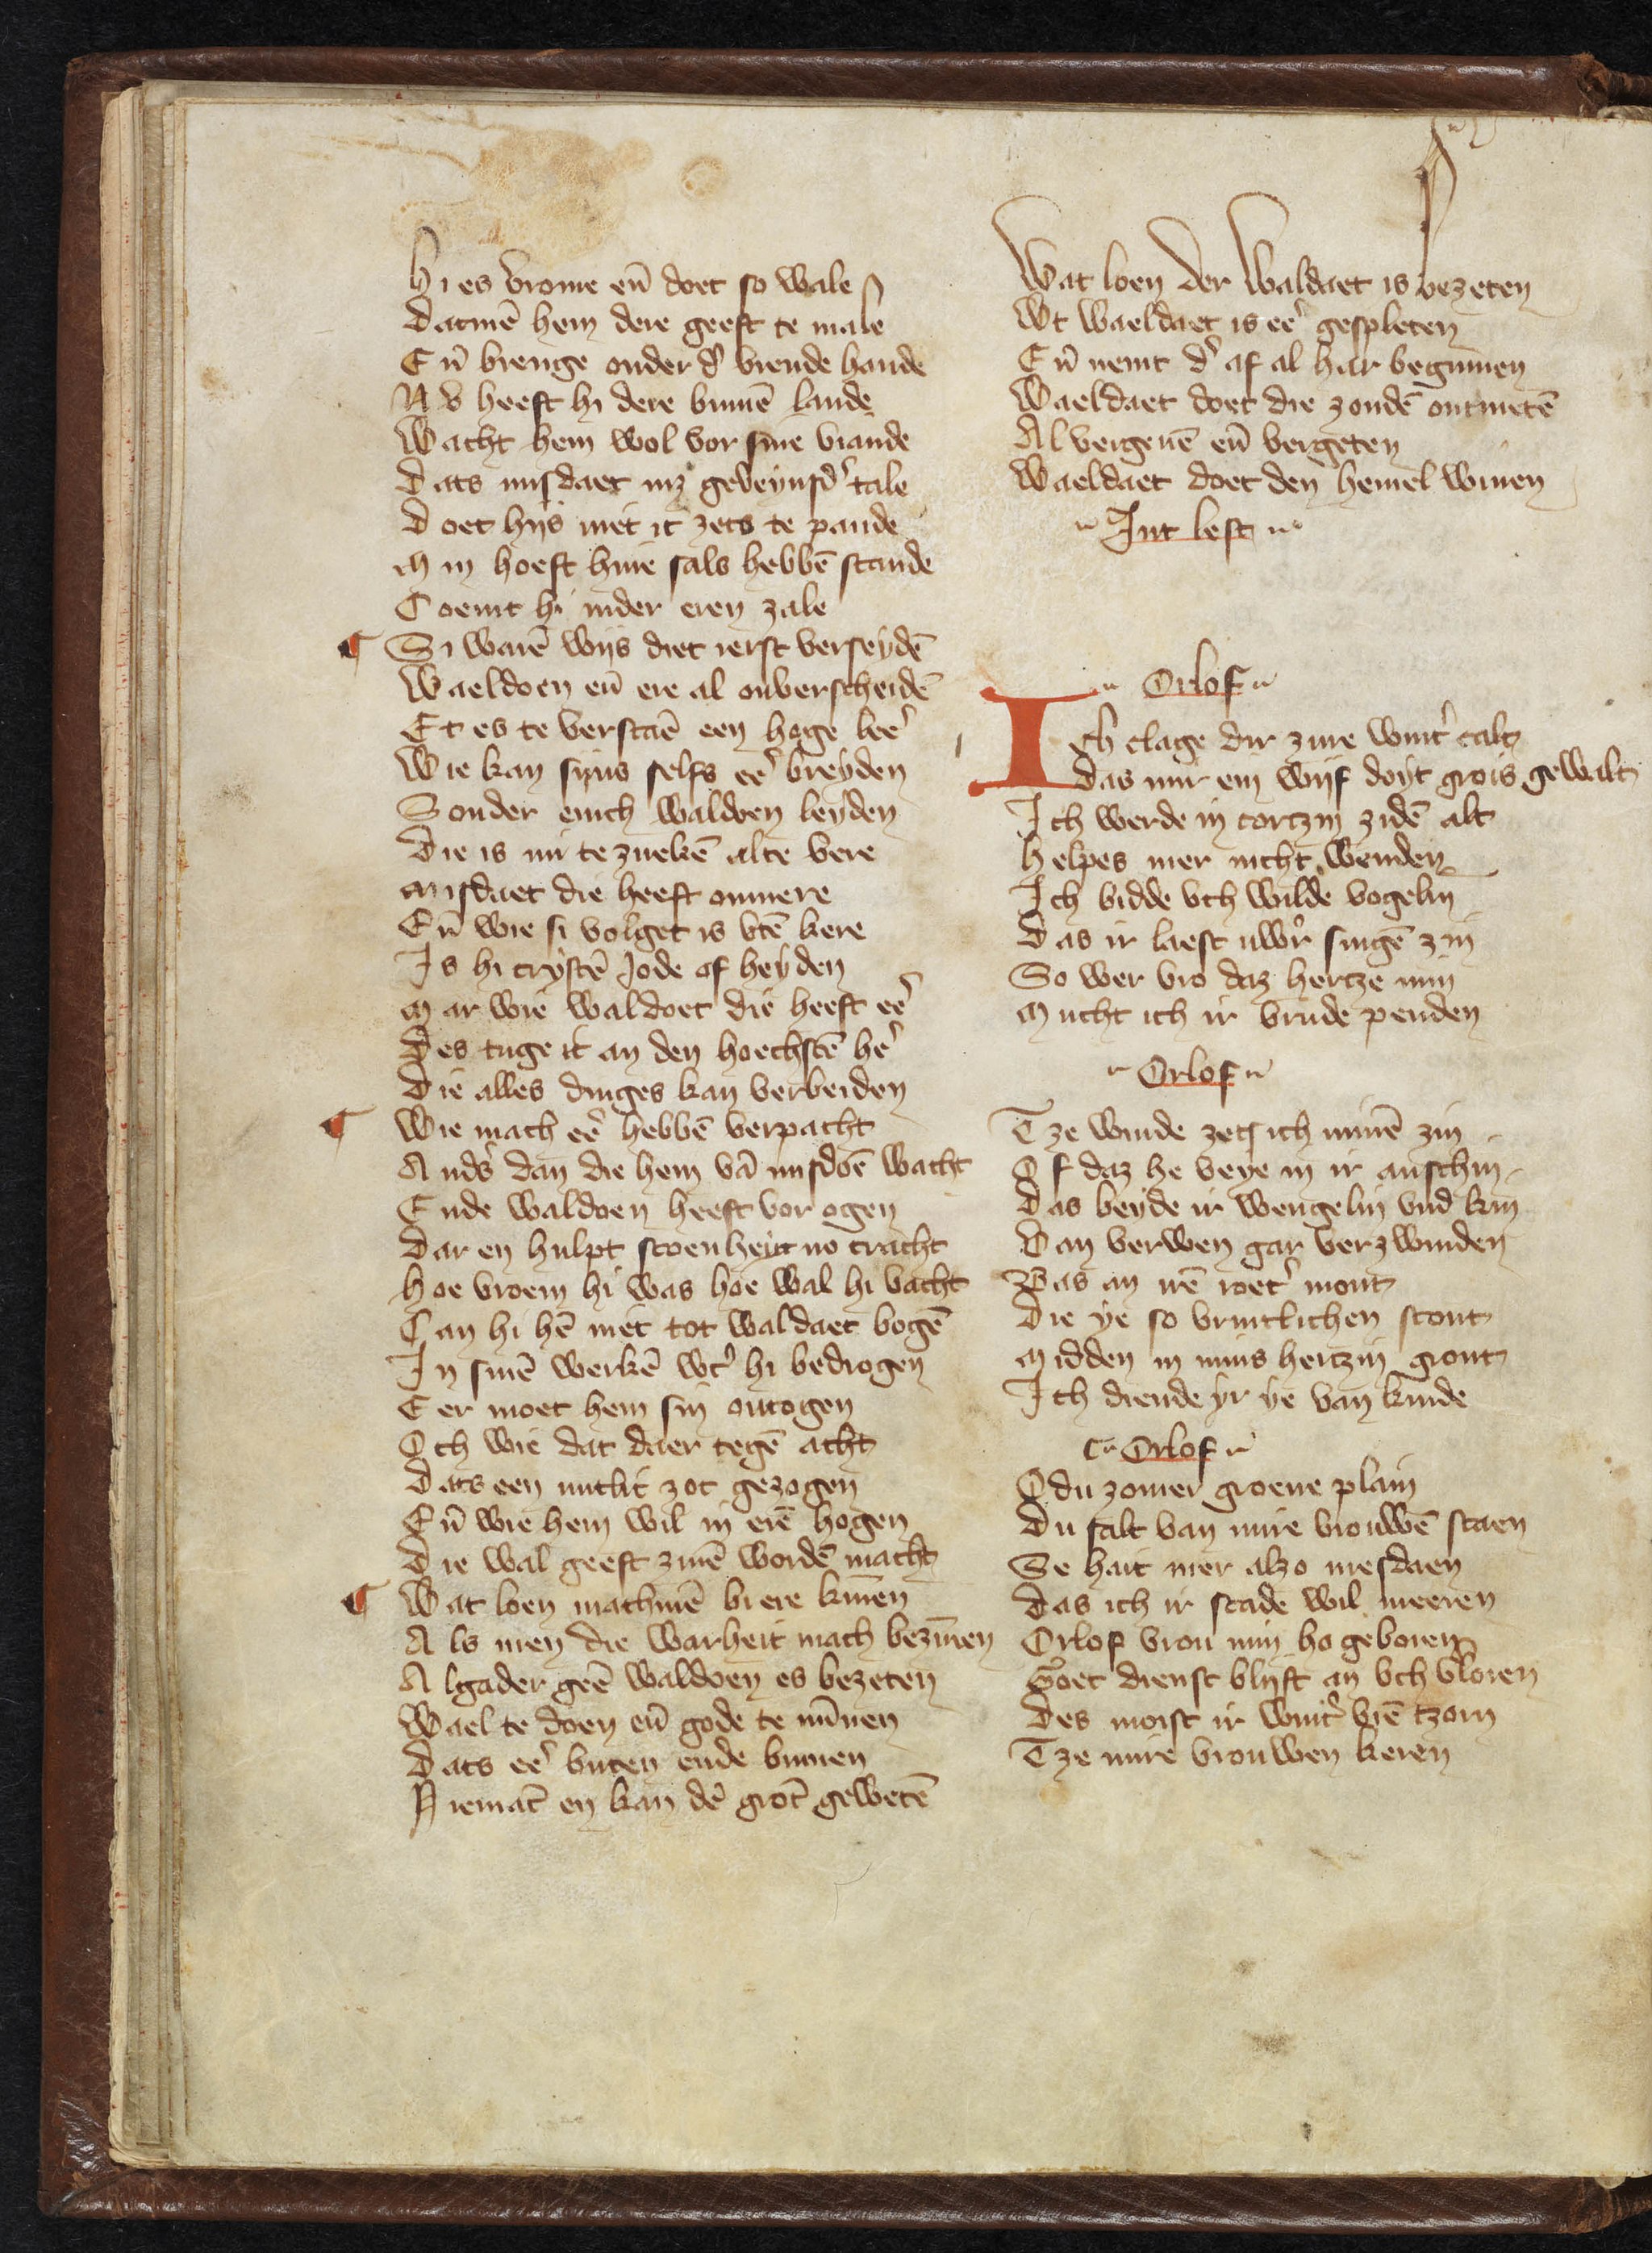 Hi es vrome eñ doet so wale
Datmē hem dere geeft te male
Eñ brenge onder d' viende hande
Als heeft hi dere binnē lande
Wacht hem wol vor sine viande
Dats misdaet mz geveynsd' tale
Doet hijs niet it zets te pande
Min hoeft hine sals hebbē scande
Coemt hi inder eren zale
¶ Si warē wijs diet ierst verseydē
Waeldoen eñ ere al onverscheidē
Et es te verstaē een hoge lee'
Wie kan sijns selfs ee' breyden
Sonder enich waldoen leyden
Die is mi te zuekē alte vere
Misdaet die heeft ommere
Eñ wie si volget is vtē kere
Is hi crystē Jode of heyden
Mar wie waldoet die heeft ee'
Des tuge it an den hoechstē he'
Die alles dinges kan verbeiden
¶ Wie mach ee' hebbē verpacht
And's dan die hem vā misdoē wacht
Ende waldoen heeft vor ogen
Dar en hulpt scoenheyt no cracht
Hoe vroem hi was hoe wal hi vacht
Can hi hē niet tot waldaet bogē
In sinē werkē wt' hi bedrogen
Eer moet hem sin ontogen
Och wie dat daer tegē acht
Dats een zot gezogen
Eñ wie hem wil in erē hogen
Die wal geeft zinē wordē macht
¶ Wat loen machmē bi ere kinnen
Als men die warheit mach bezinnen
Algader geē waldoen es bezeten
Wael te doen eñ gode te minnen
Dats ee' buten ende binnen
Niemāt en kan dē grōt gewetē
Wat loen der waldaet is bezeten
Wt waeldaet is ee' gespleten
Eñ nemt d' af al har beginnen
Waeldaet doet die zondē ontmetē
Al vergeuē eñ vergeten
Waeldaet doet den hemel winnen
Int lest
Orlof
Ich clage dir zure wint' calt
Das mir ein wijf doyt grois gewalt
Ich werde in cortzin zidē alt
Helpes mer nicht wenden
Ich bidde vch wilde vogelin
Das ir laest uwer singē zin
So wer vro daz hertze min
Mucht ich ir vrude penden
Orlof
Tze winde zetz ich minē zin
Of daz he veye in ir anschin
Das beyde ir wengelin vnd kin
Van verwen gar verzwinden
Bas an irē roet' mont
Die ye so vrintlichen stont
Midden in mins hertzin gront
Ich diende yr ye van kinde
Orlof
O du zomer groene plain
Du salt van mire vrouwē staen
Se hait mer alzo mesdaen
Das ich ir scade wil meeren
Orlof vrou min ho geboren
Goet dienst blijft an vch v'loren
Des moist ir wint' viē tzorn
Tze mire vrouwen keren